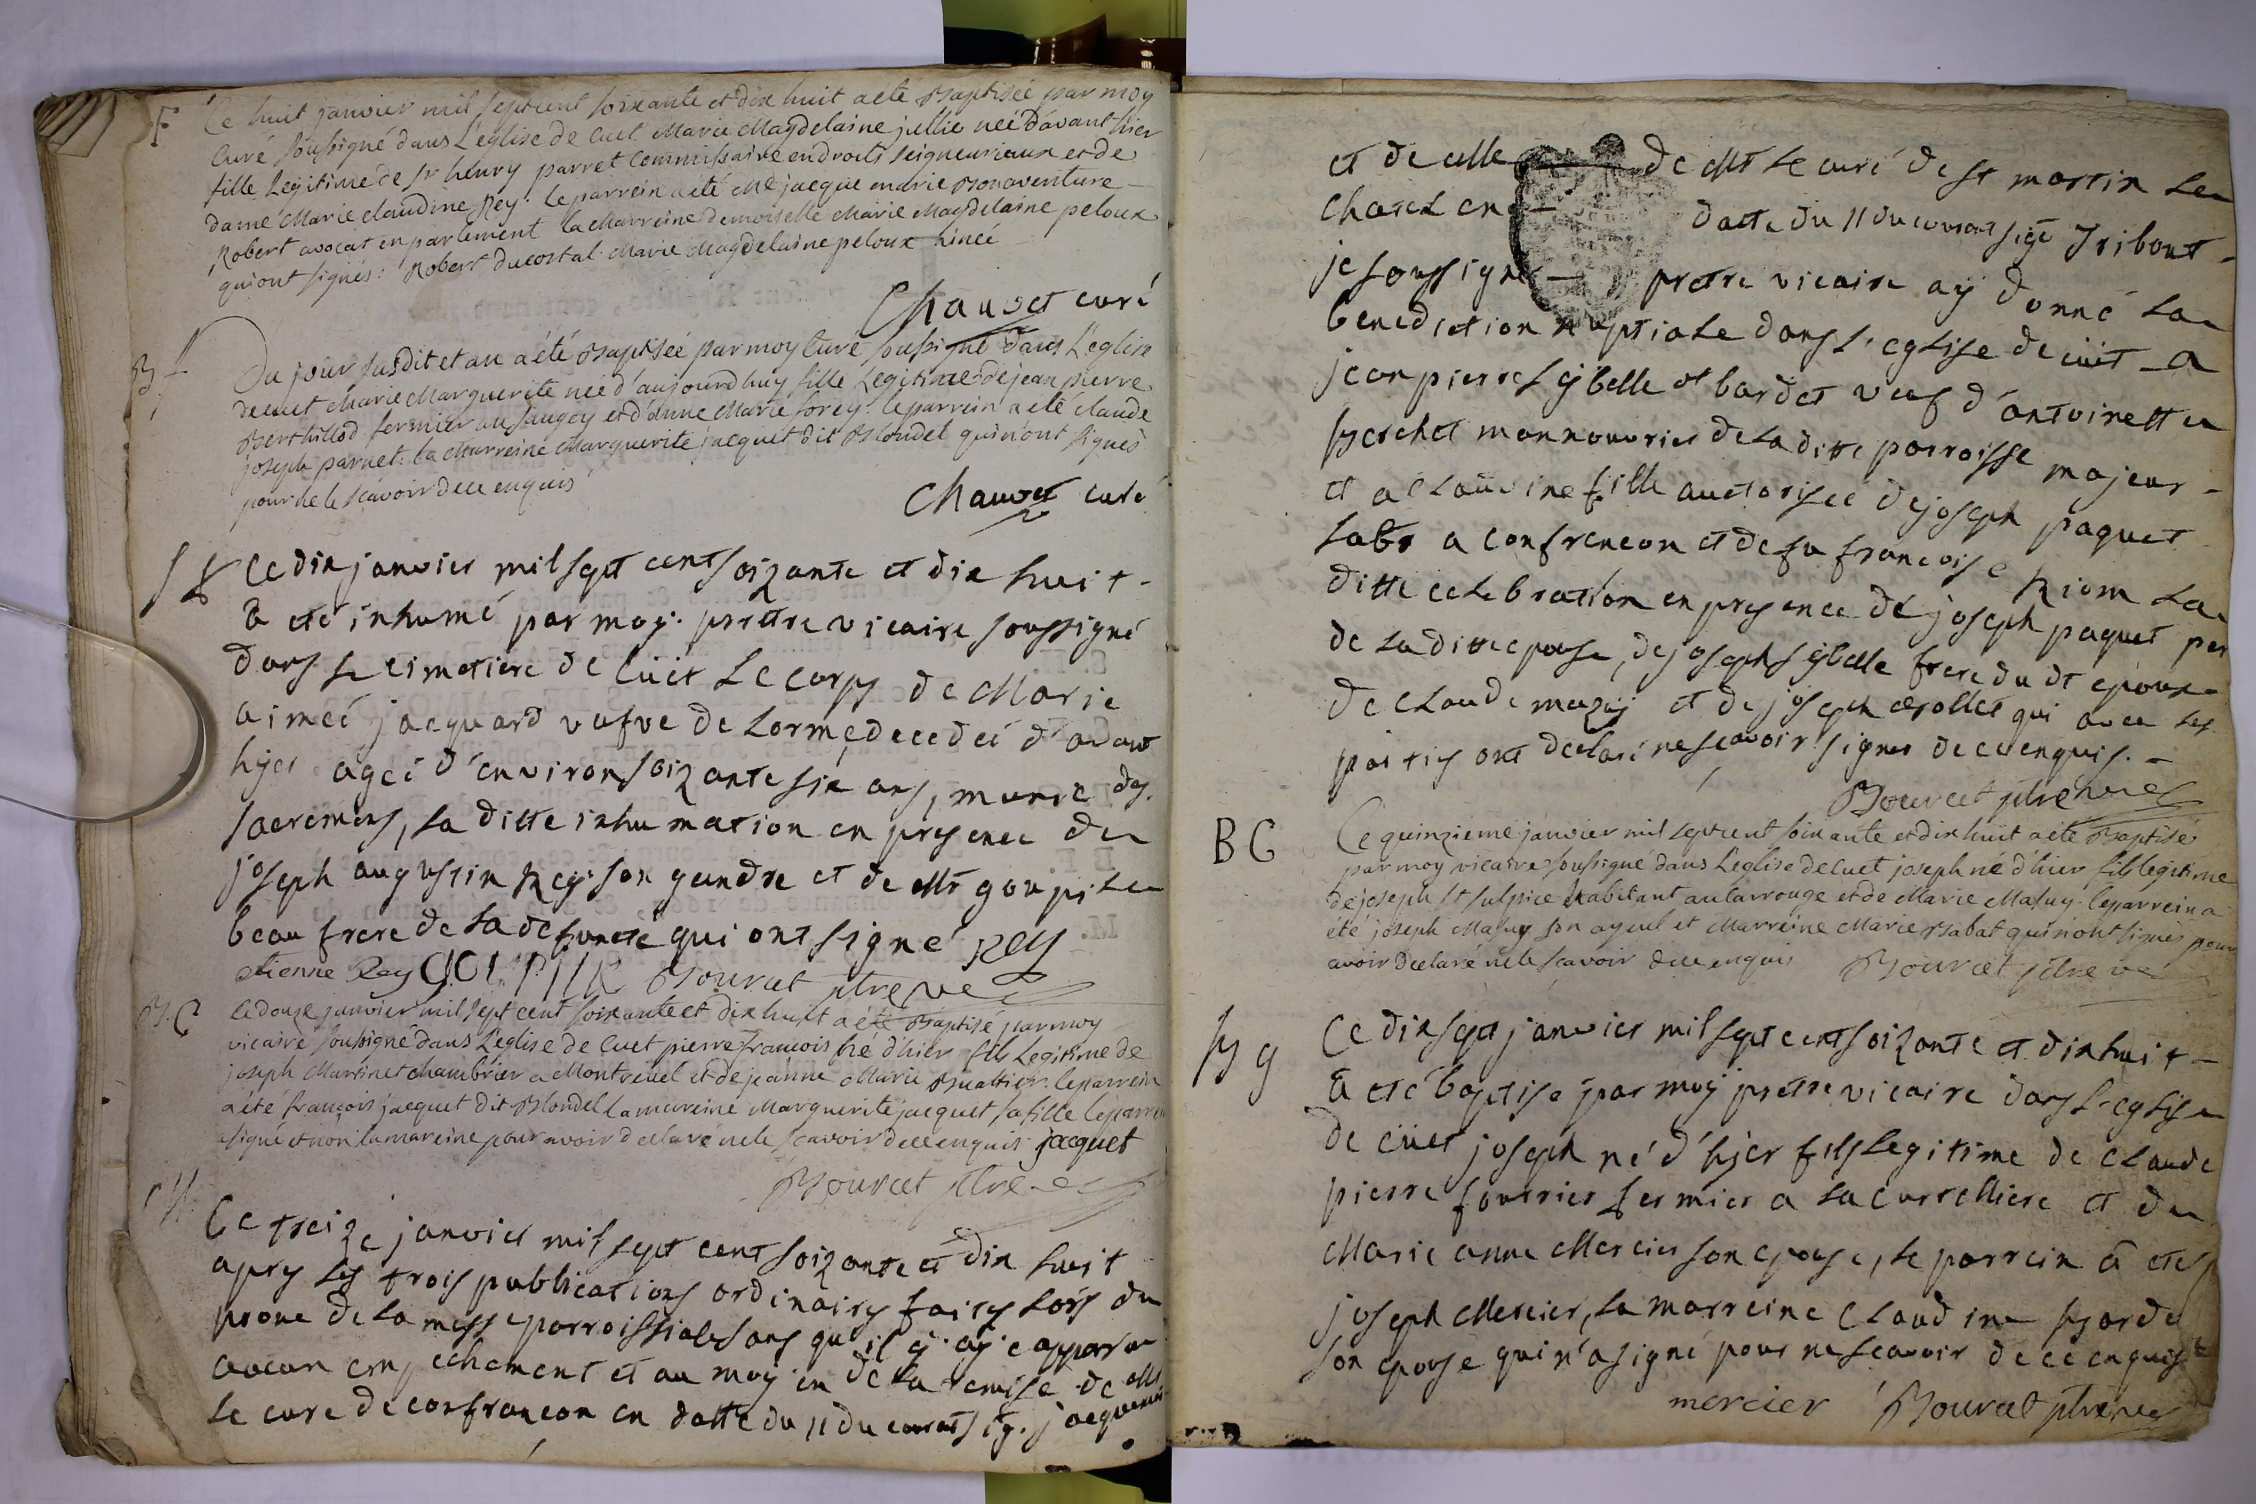 F
Ce huit janvier mil sept cent soixante et dix huit a eté Baptisée par moy
Curé soussigné dans L'eglise de Cuet Marie Magdelaine jullie née d'avant hier
fille Legitime de Sr henry parret Commissaire en droits seigneuriaux et de
dame Marie claudine Rey. le parrein a été Me jacque marie Bonaventure
Robert avocat en parlement la Marreine demoiselle Marie Magdelaine peloux
qui ont signés: Robert ducostal Marie Magdelaine peloux
Chauvet curé
B f
Du jour susdit et an a été Baptisée par moy Curé soussigné dans L'eglise
de cuet Marie Marguerite née d'aujourdhuy fille Legitime de jean pierre
Berthillod fermier au saugey et d'anne Marie sorey. le parrein a eté claude
joseph parnet. la Marreine Marguerite jacquet dit Blondel qui n'ont signés
pour ne le scavoir de ce enquis
Chauvet curé
Ce dix janvier mil sept cent soizante et dix huit
a eté inhumé par moy prettre vicaire soussigné
dans le cimetiere de Cuet Le corps de Marie
aimeé jacquard vefve de Lorme, decedeé d'avant
hyer ageé d'environ soizante six ans, munie des
sacremens, La ditte inhumation en presence de
joseph augustin Rey son gendre et de Mr goupil
beau frere de La defuncte qui ont signé Rey
etienne Rey GOUPIL Bourcet ptre ve
B. C
ce douze janvier mil sept cent soixante et dix huit a été Baptisé par moy
vicaire soussigné dans L'eglise de Cuet pierre francois né d'hier fils Legitime de
joseph Martinet chambrier a Montrevel et de jeanne Marie Buattier. le parrein
a été françois jacquet dit Blondel la mareine Marguerite jacquet sa fille le parrein
a signé et non la mareine pour avoir declaré ne le scavoir de ce enquis jacquet
Bourcet ptre ve
Ce treize janvier mil sept cent soizante et dix huit
apres les trois publications ordinaires faites Lors du
prone de La messe parroissiale sans qu'il y aÿe apparu
aucun empechement et au moyen de La remise de Mr
Le curé de confrancon en datte du 11 du courant sig.
et de celle de Mr Le curé de st martin Le
Chatel en datte du 11 du courant sigé Tribout
je soussigné prettre vicaire aÿ donné La
benediction nuptiale dans L'eglise de cüet a
jean pierre Sÿbelle et bardet veuf d'antoinette
Berchet mannouvrier de La ditte parroisse majeur
et a Claudine fille auctorisee de joseph paquet
Labr a confrencon et de fu francoise Riom La
ditte celebration en presence de joseph paquet per
de La ditte epouse, de joseph Sÿbelle frere du dt époux
de claude mazuÿ et de joseph qui avec les
parties ont declaré ne scavoir signer de ce enquis.
Bourcet ptre ve
B G
Ce quinzieme janvier mil sept cent soixante et dix huit a eté Baptisé
par moy vicaire soussigné dans L'eglise de Cuet joseph né d'hier fils legitime
de joseph St sulpice habitant au tarrouge et de Marie Masuy. le parrein a
été joseph Masuy son ayeul et Marreine Marie Rabat qui n'ont signés pour
avoir declaré ne le scavoir de ce enquis Bourcet ptre ve
B g
Ce dix sept janvier mil sept cent soizante et dix huit
a eté baptisé par moy prettre vicaire dans L'eglise
de cüet joseph né d'hÿer fils Legitime de Claude
pierre fourrier fermier a La currelliere et de
Marie anne Mercier son epouse, le parrein a eté
joseph Mercier, La marreine Claudine
son epouse qui n'a signé pour ne scavoir de ce enquise
mercier Bourcet ptre ve